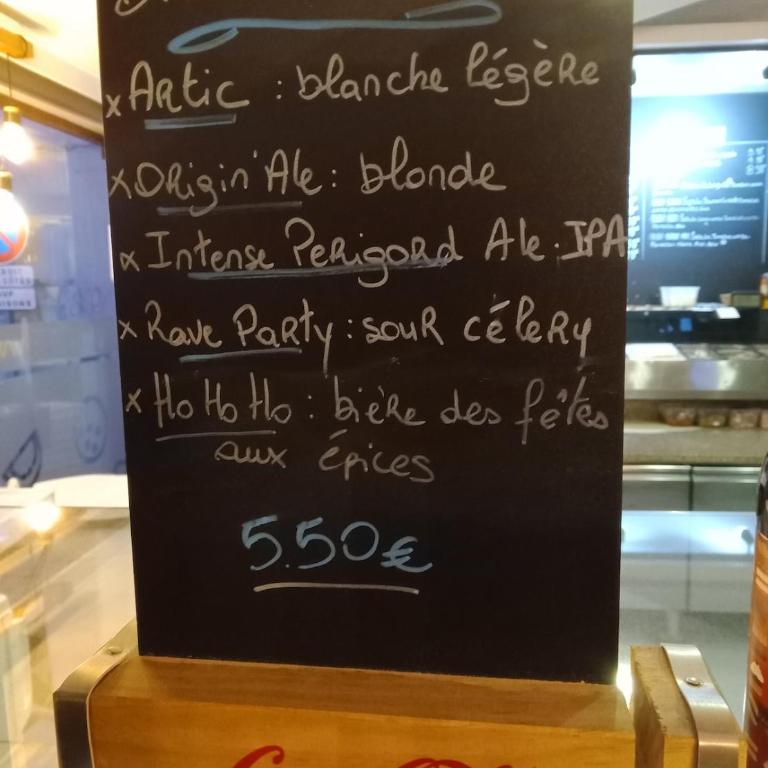 x Artic : blanche légère
x Origin'Ale : blonde
x Intense Perigord Ale : IPA
x Rave Party : sour célery
x Ho Ho Ho : bière des fêtes
aux épices
5.50€